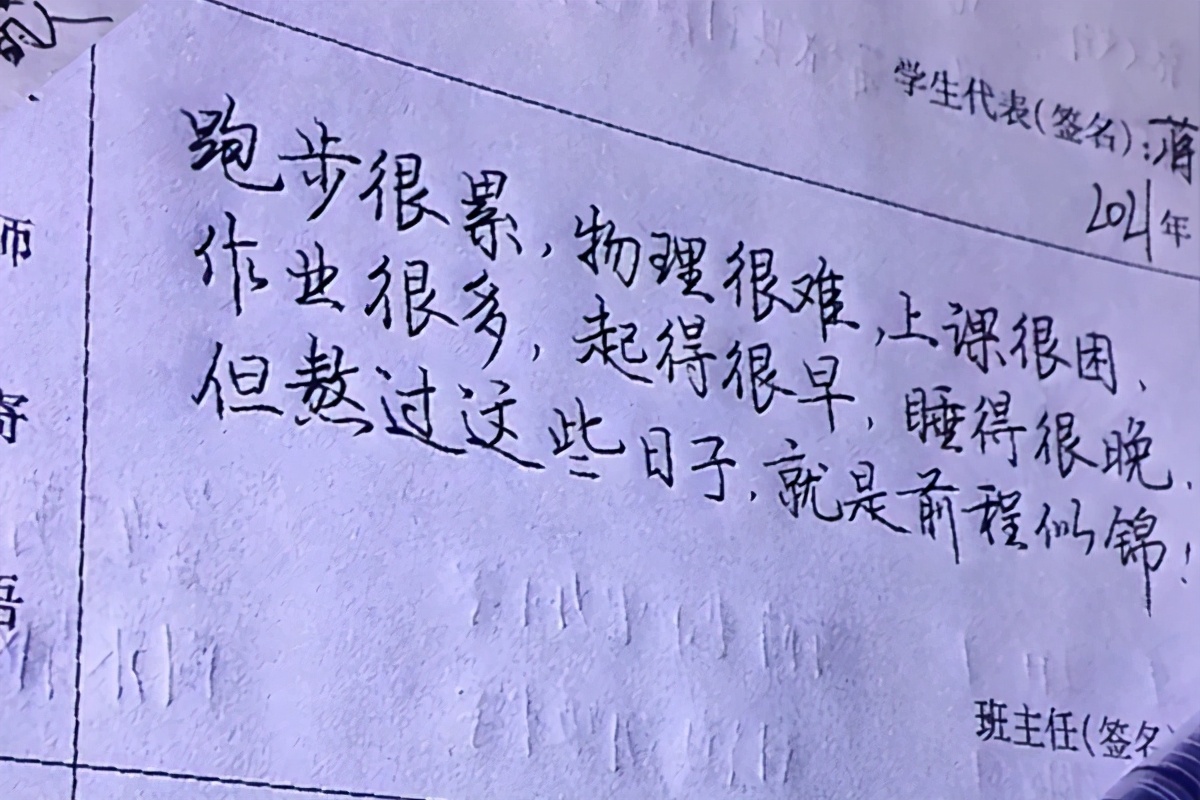 学生代表(签名):蒋
2021年
师
寄
语
跑步很累,物理很难,上课很困、
作业很多,起得很早,睡得很晚.
但熬过这些日子,就是前程似锦!
班主任(签名)